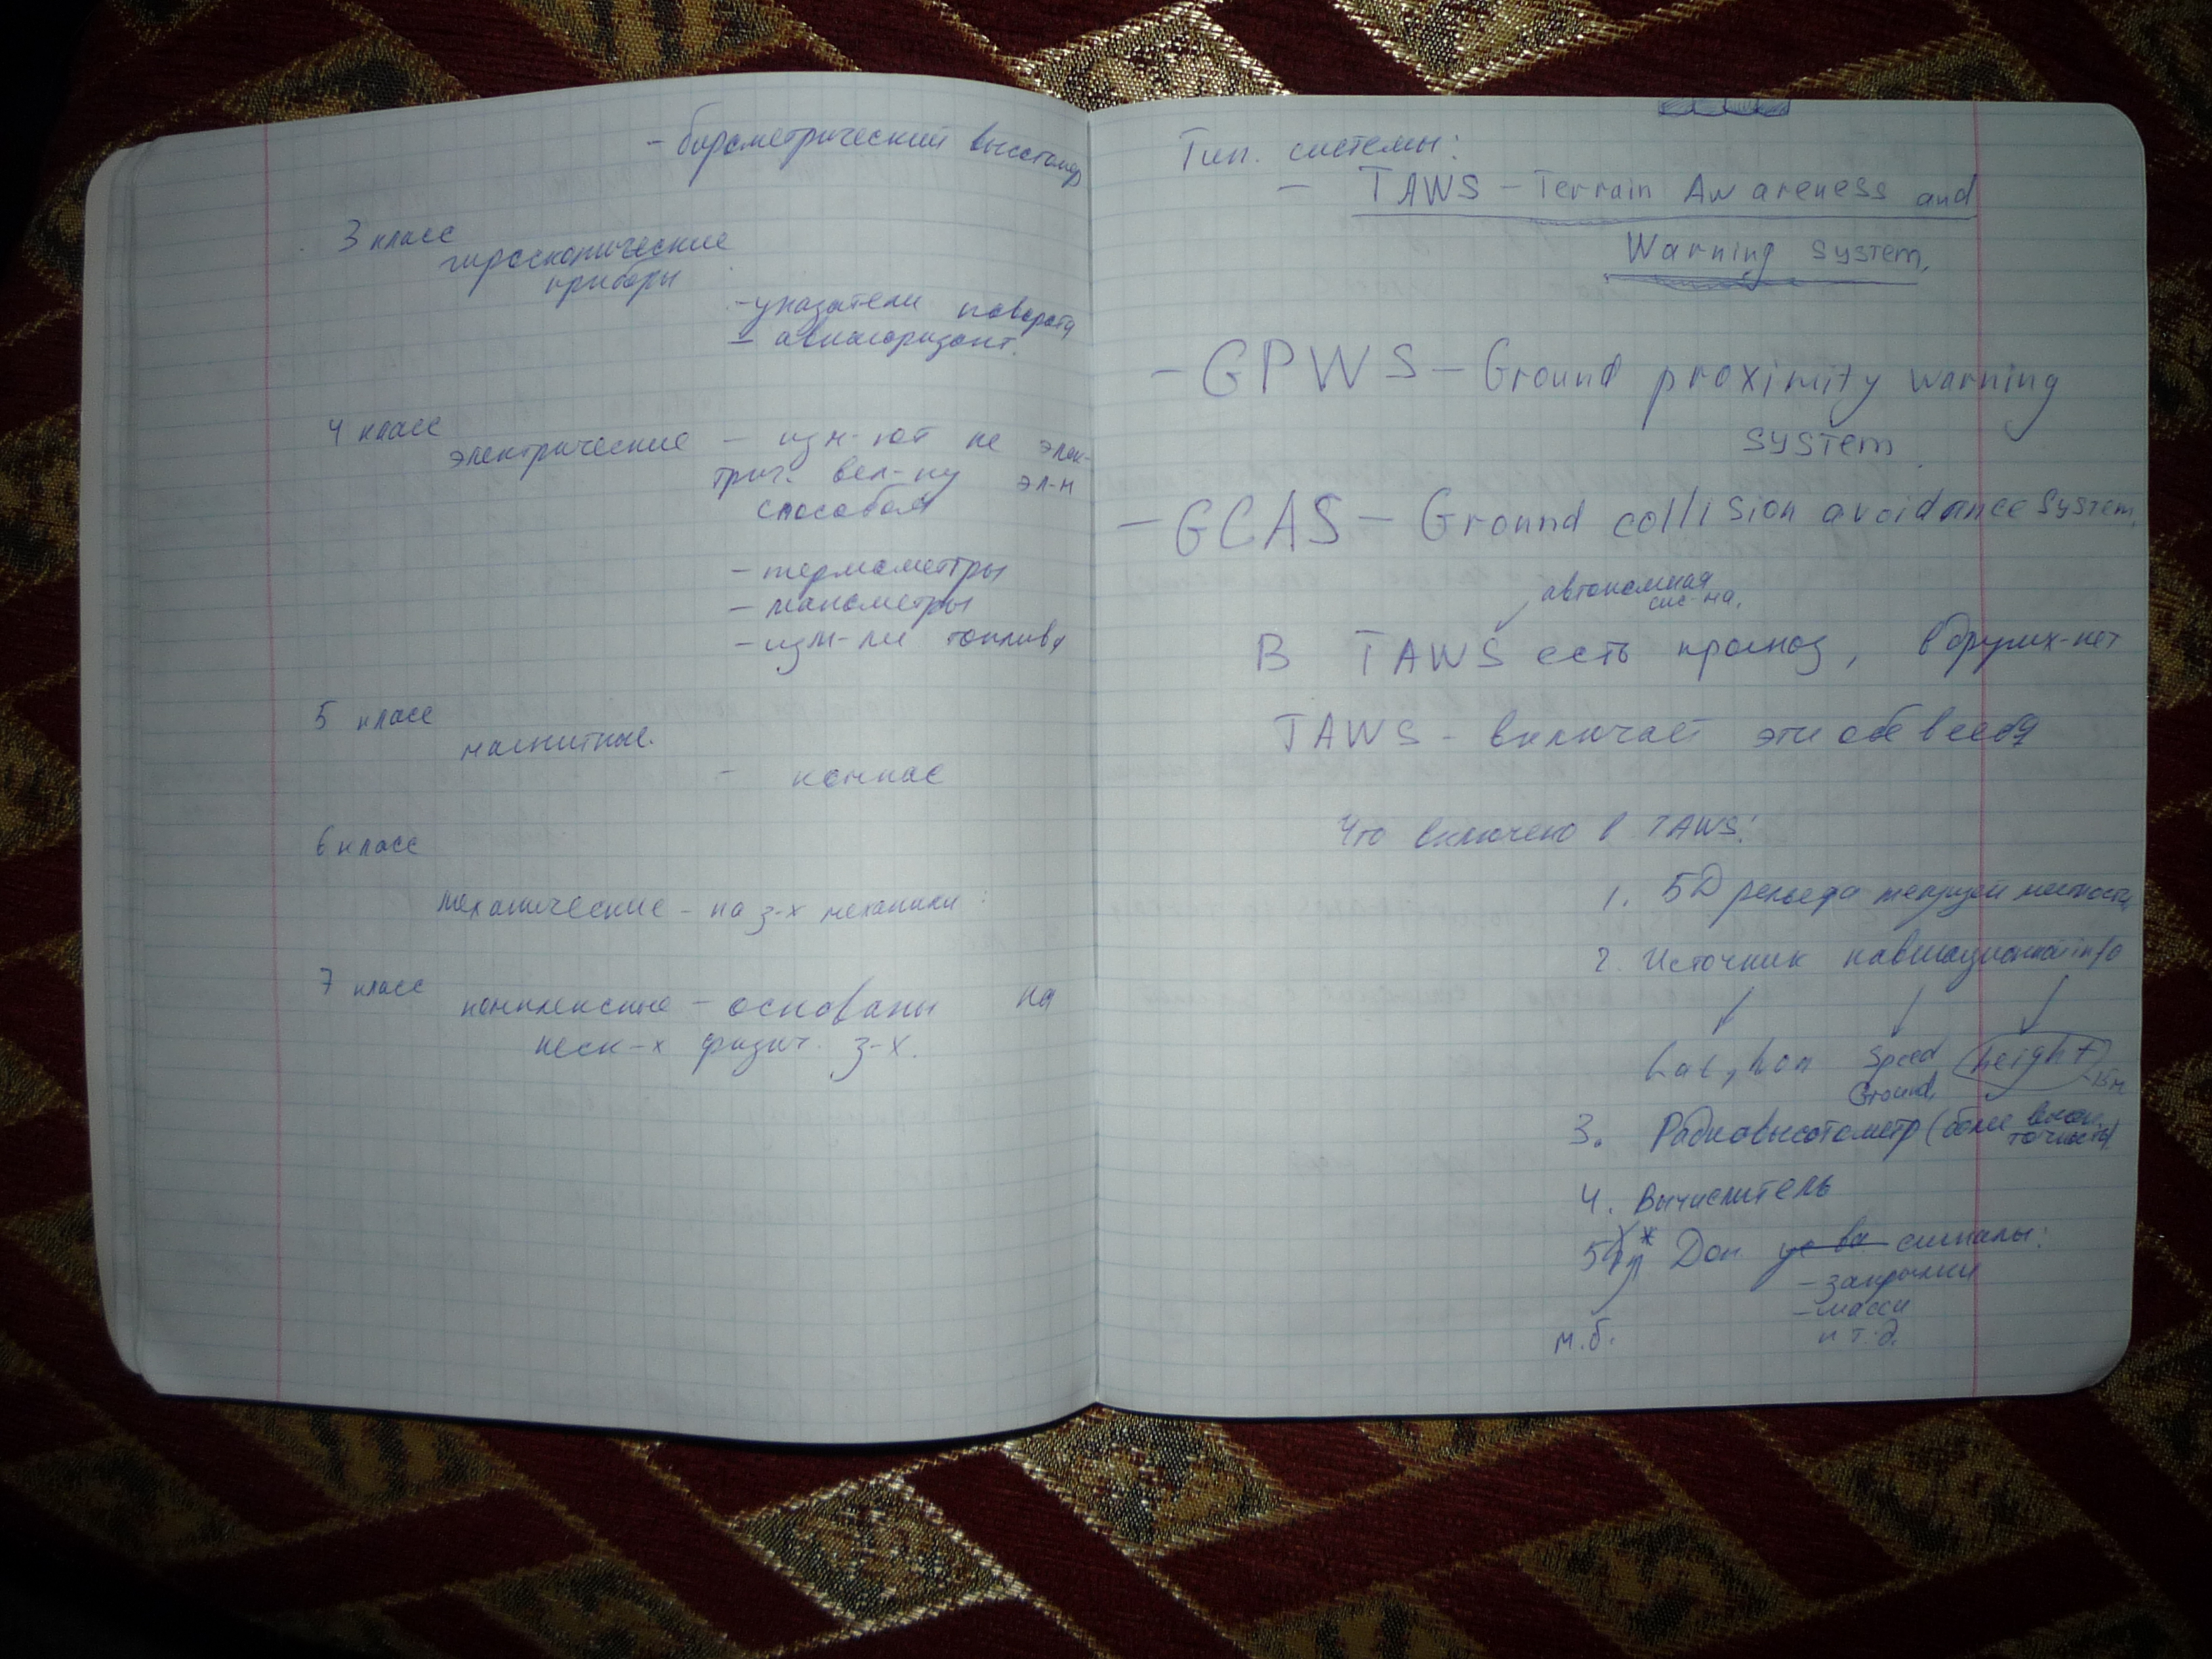 - барометрический высотомер
3 класс
гироскопические
приборы
- указатели поворота
- авиагоризонт.
4 класс
электрические - изм-ют не элек-
трич. вел-ну эл-м
способом
- термометры
- манометры
- изм-ли топлива
5 класс
магнитные.
- компас
6 класс
механические - на з-х механики:
7 класс
комплексные - основаны на
неск-х физич. з-х.
Тип. системы:
- TAWS - Terrain Awareness and
Warning System,
- GPWS - Ground proximity warning
system
- GCAS - Ground collision avoidance system,
автономная
сис-ма,
В TAWS есть прогноз, в других - нет
TAWS - включает эти обе в себя
Что включено в TAWS:
1. БД рельефа текущей местности
2. Источник навигационной info
Lat, Lon Speed height
Ground, 15м
3. Радиовысотометр (более
точность)
4. Вычислитель
5 * Доп сигналы:
- закрылки
- шасси
м.б. и т.д.